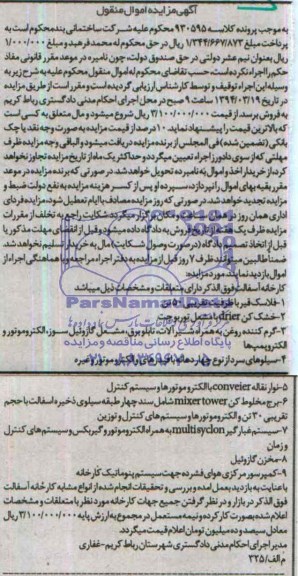 آگهی مزایده اموال منقول
به موجب پرونده کلاسه ۹۳۰۵۹۵ محکوم علیه شرکت ساختمانی بند محکوم است به
پرداخت مبلغ ۱/۳۴۴/۶۶۷/۸۷۳ ریال در حق محکوم له محمد فرهید و مبلغ ۱/۰۰۰/۰۰۰
ریال بعنوان نیم عشر دولتی در حق صندوق دولت، چون نامبرده در موعد مقرر قانونی مفاد
حکم را اجراء نکرده است، حسب تقاضای محکوم له اموال منقول محکوم علیه به شرح زیر به
وسیله این اجراء توقیف و توسط کارشناس ارزیابی گردیده است و مقرر است از طریق مزایده
در تاریخ ۱۳۹۴/۰۳/۱۹ ساعت ۹ صبح در محل اجرای احکام مدنی دادگستری رباط کریم
به فروش برسد. از قیمت ۳/۱۰۰/۰۰۰/۰۰۰ ریال شروع میشود و مال متعلق به کسی است
که بالاترین قیمت را پیشنهاد نماید. ۱۰ درصد از قیمت مزایده به صورت وجه نقد یا چک
بانکی (تضمین شده) فی المجلس از برنده مزایده دریافت میشود و الباقی وجه مزایده ظرف
مهلتی که از سوی دادورز اجراء تعیین میگردد و حداکثر یک ماه از تاریخ مزایده تجاوز نخواهد
کرد از خریدار اخذ و اموال به نامبرده تحویل خواهد شد. در صورتی که برنده مزایده در موعد
مقرر بقیه بهای اموال را نپردازد، سپرده او پس از کسر هزینه مزایده به نفع دولت ضبط و
مزایده تجدید خواهد شد. در صورتی که روز مزایده مصادف با ایام تعطیل شود، مزایده فردای
اداری همان روز در همان ساعت و مکان برگزار میگردد. شکایت راجع به تخلف از مقررات
مزایده ظرف یک هفته از تاریخ فروش به دادگاه داده میشود و قبل از انقضای مهلت مذکور یا
قبل از اتخاذ تصمیم دادگاه (در صورت وصول شکایت) مال به خریدار تسلیم نخواهد شد.
ضمنا طالبین میتوانند ظرف ۷ روز قبل از مزایده به دفتر اجراء مراجعه و با هماهنگی اجراء از
اموال بازدید نمایند. مورد مزایده:
کارخانه آسفالت فوق الذکر دارای متعلقات و مشخصات ذیل میباشد
۱-فلاسک قیر با ظرفیت تقریبی ۵۰ تن
۲-خشک کن drier با مشعل توربوجت
۳-گرم کننده روغن به همراه شیرآلات، تابلو برق، مشعل گازوئیل سوز، الکتروموتور و
الکتروپمپها
۵-نوار نقاله conveier با الکتروموتورها و سیستم کنترل
۶-برج مخلوط کن mixer tower شامل سند چهار طبقه سیلوی ذخیره آسفالت با حجم
تقریبی ۳۰ تن و الکتروموتورها و سیستم های کنترل و توزین
۷-سیستم غبارگیر multisyclon به همراه الکتروموتور و گیربکس و سیستم های کنترل
و زمان
۸-مخزن گازوئیل
۹-کمپرسور مرکزی هوای فشرده جهت سیستم پنوماتیک کارخانه
با عنایت به بازدید بعمل آمده و بررسی و تحقیقات انجام شده از انواع مشابه کارخانه آسفالت
فوق الذکر در بازار و در نظر گرفتن جمیع جهات کارخانه مورد نظر با متعلقات و مشخصات
اعلام شده بصورت کارکرده و نیمه مستعمل در مجموع به ارزش پایه ۳/۱۰۰/۰۰۰/۰۰۰ ریال
معادل سیصد و ده میلیون تومان اعلام قیمت میگردد.
مدیر اجرای احکام مدنی دادگستری شهرستان رباط کریم-غفاری
م الف/۳۲۵